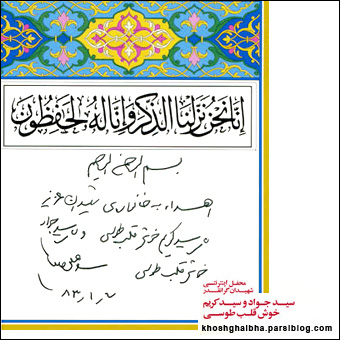 إنا نحن نزلنا الذكر وإنا له لحفظون
بسم الله الرحمن الرحیم
اهداء به خانواده‌ی شهیدان عزیز
سید کریم خوش قلب طوسی و سید جواد
خوش قلب طوسی
محفل اینترنتی
شهیدان گرانقدر
سید جواد و سید کریم
خوش قلب طوسی
khoshghalbha.parsiblog.com